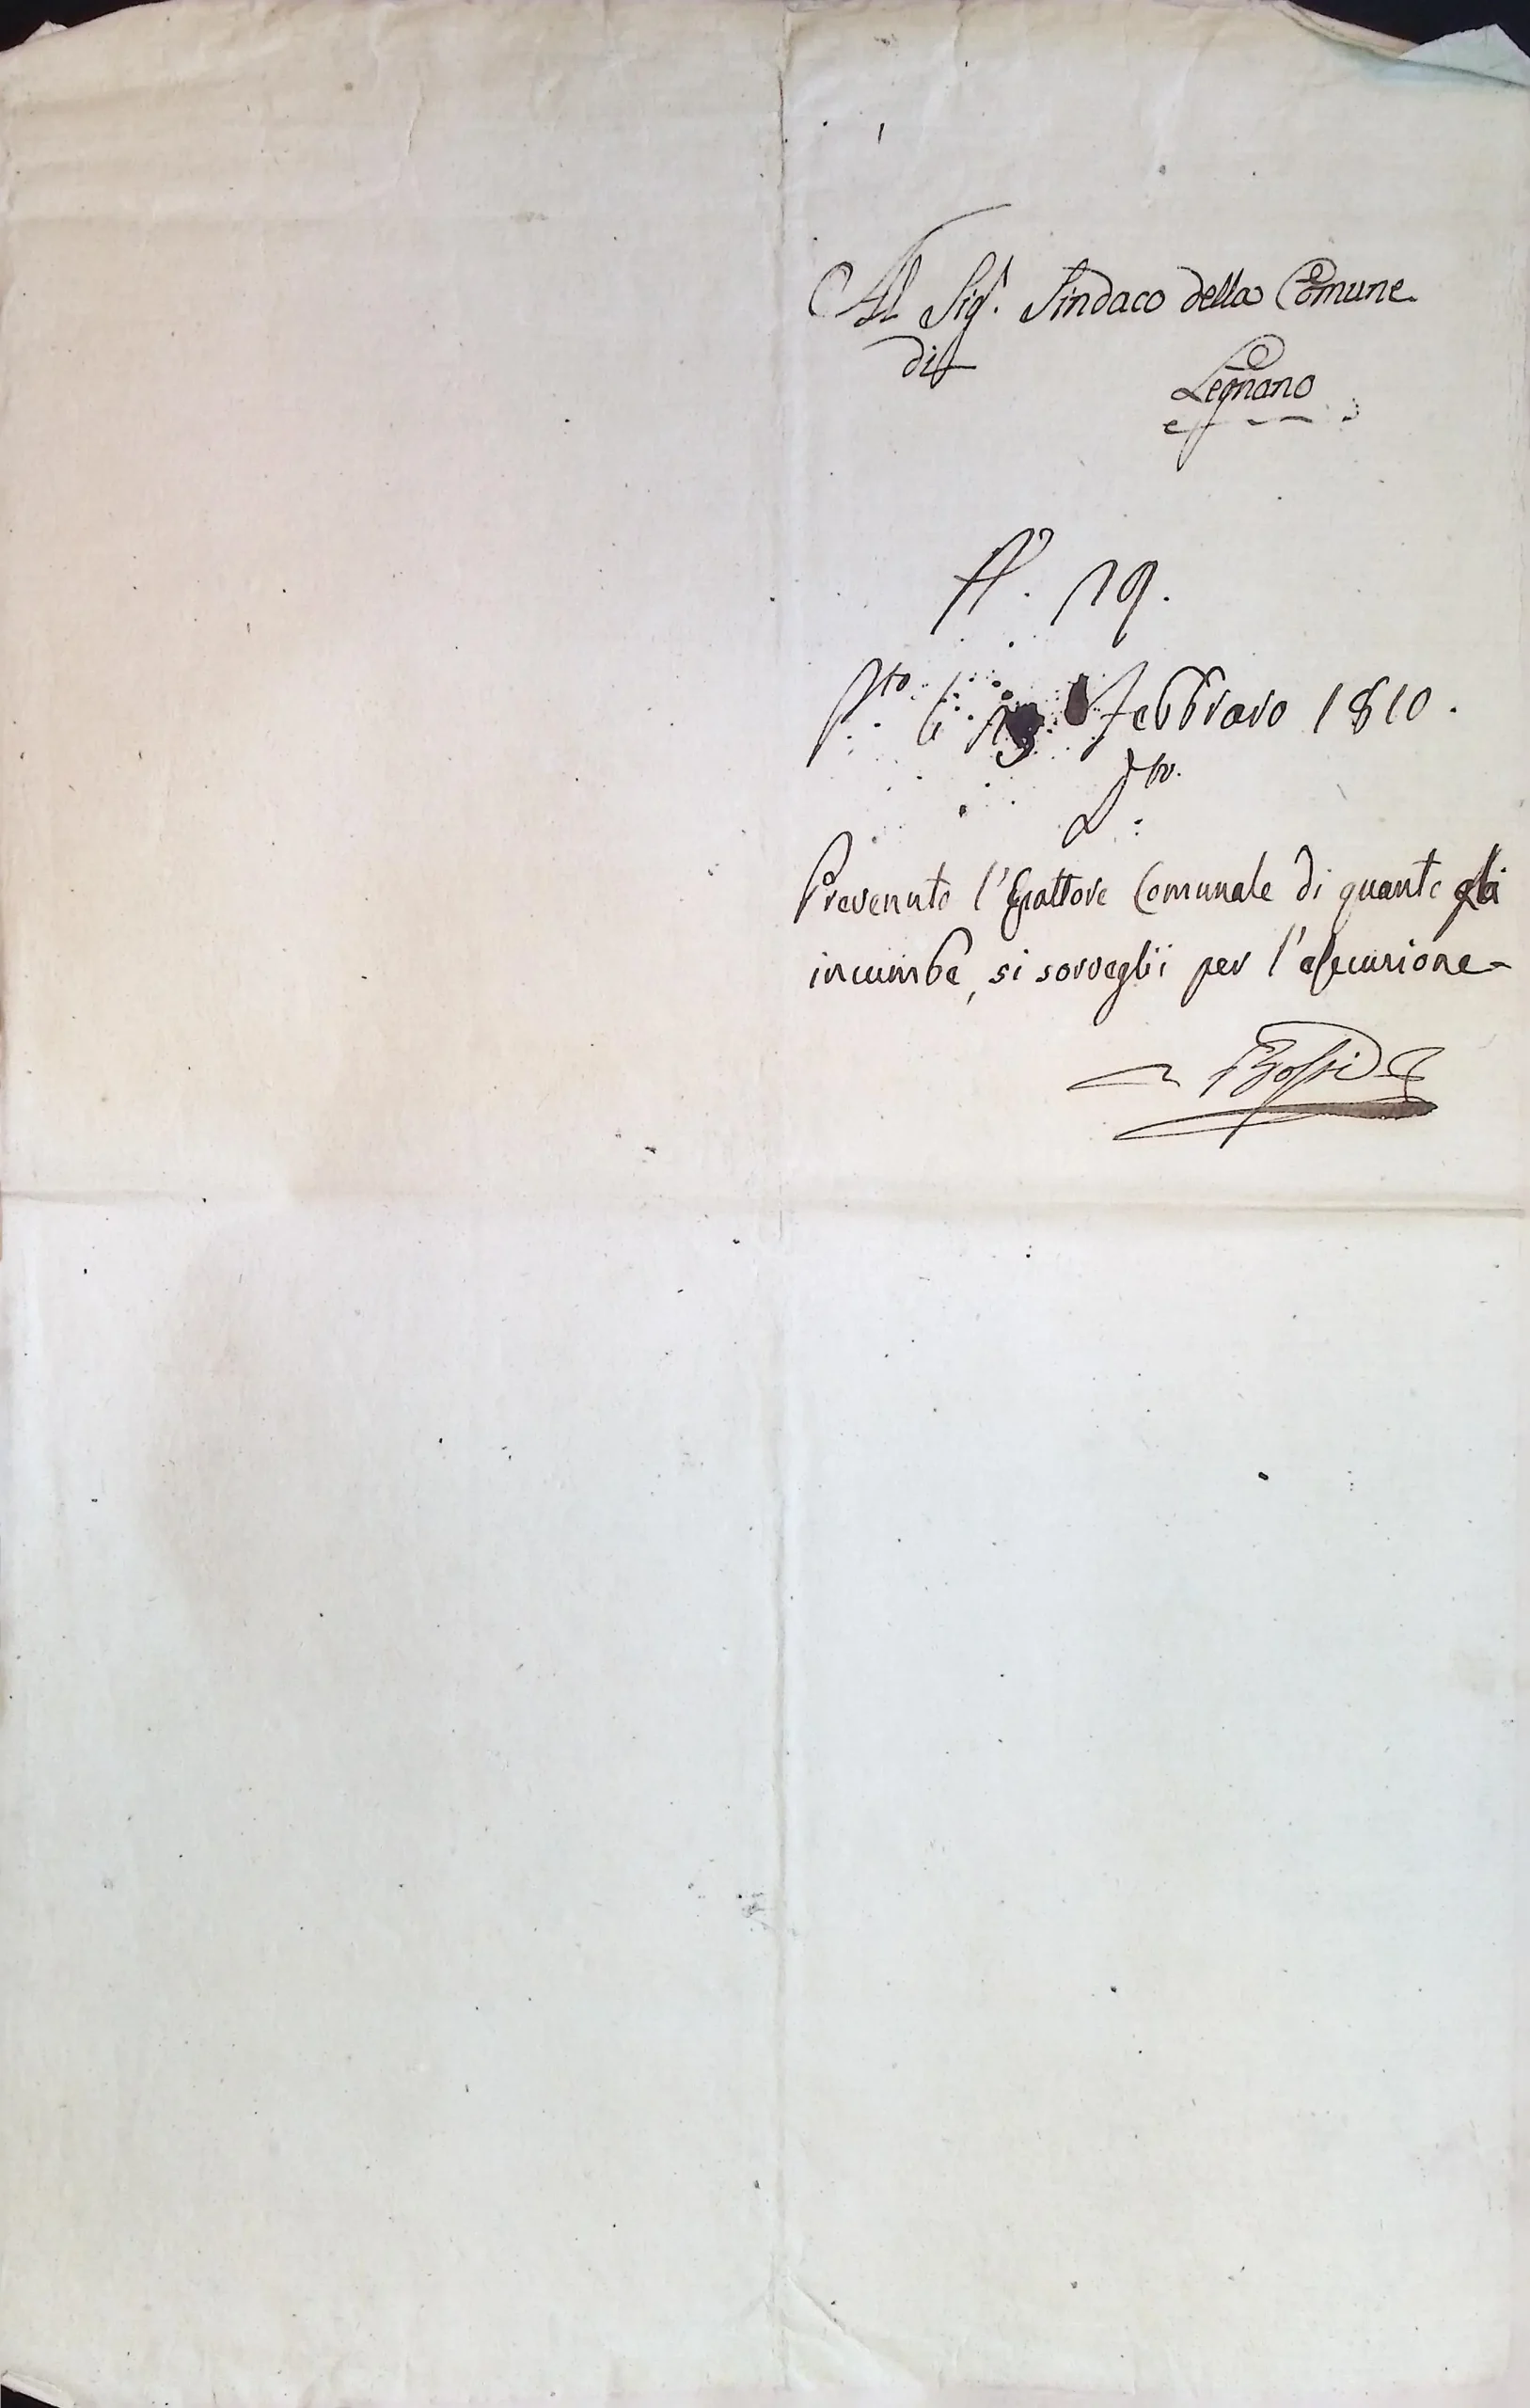 Al Sig.r Sindaco della Comune
di
Legnano
N.° 19.
P.to li 13 Febbraro 1810.
Prevenuto l'Esattore Comunale di quanto gli
incumbe, si sorveglii per l'esecuzione
Bossi